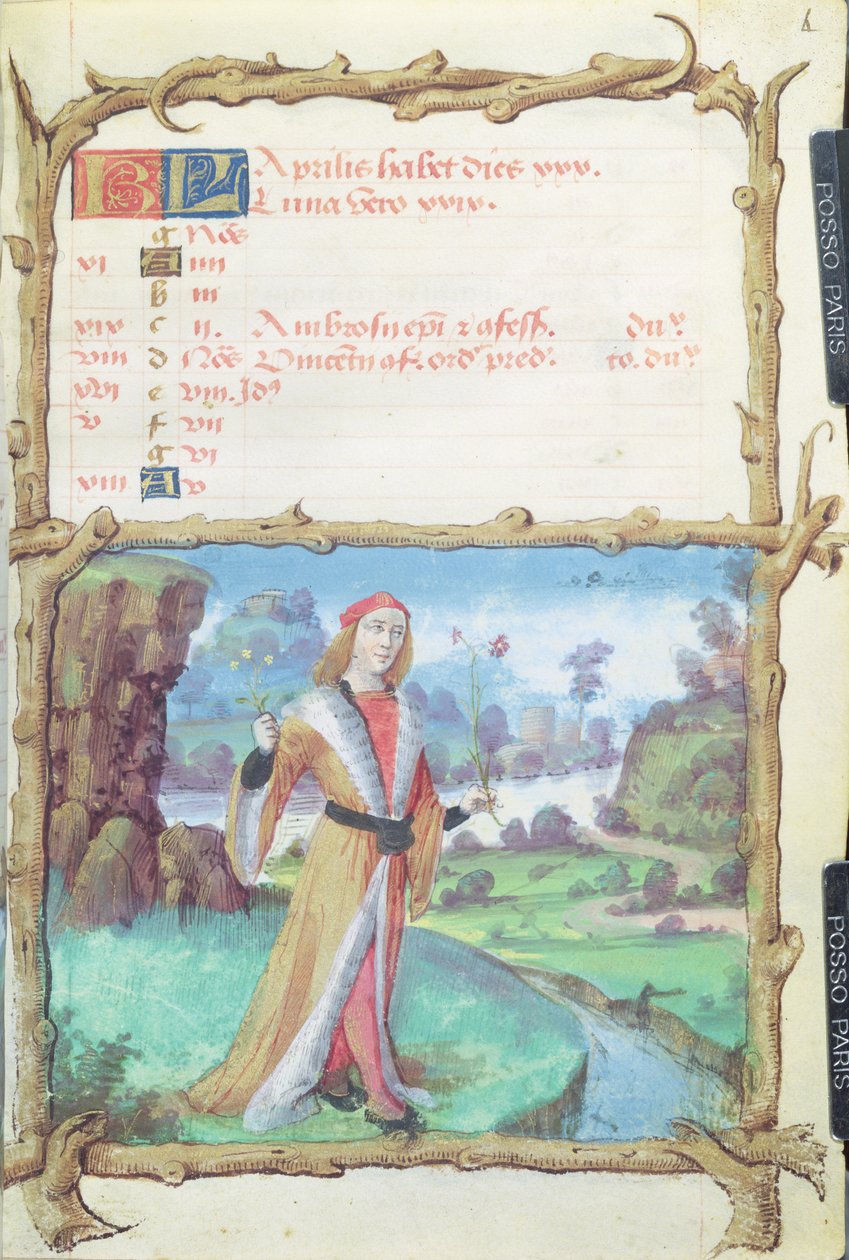 4
KL Aprilis habet dies xxx.
Luna vero xxix.
g Nōs
vi A iiii
b iii
xix c ii. Ambrosii epī 
viii d Nōs Vincētii ord' pred'.
xvi e viii. Id'
v f vii
g vi
xiii A v
POSSO PARIS
POSSO PARIS